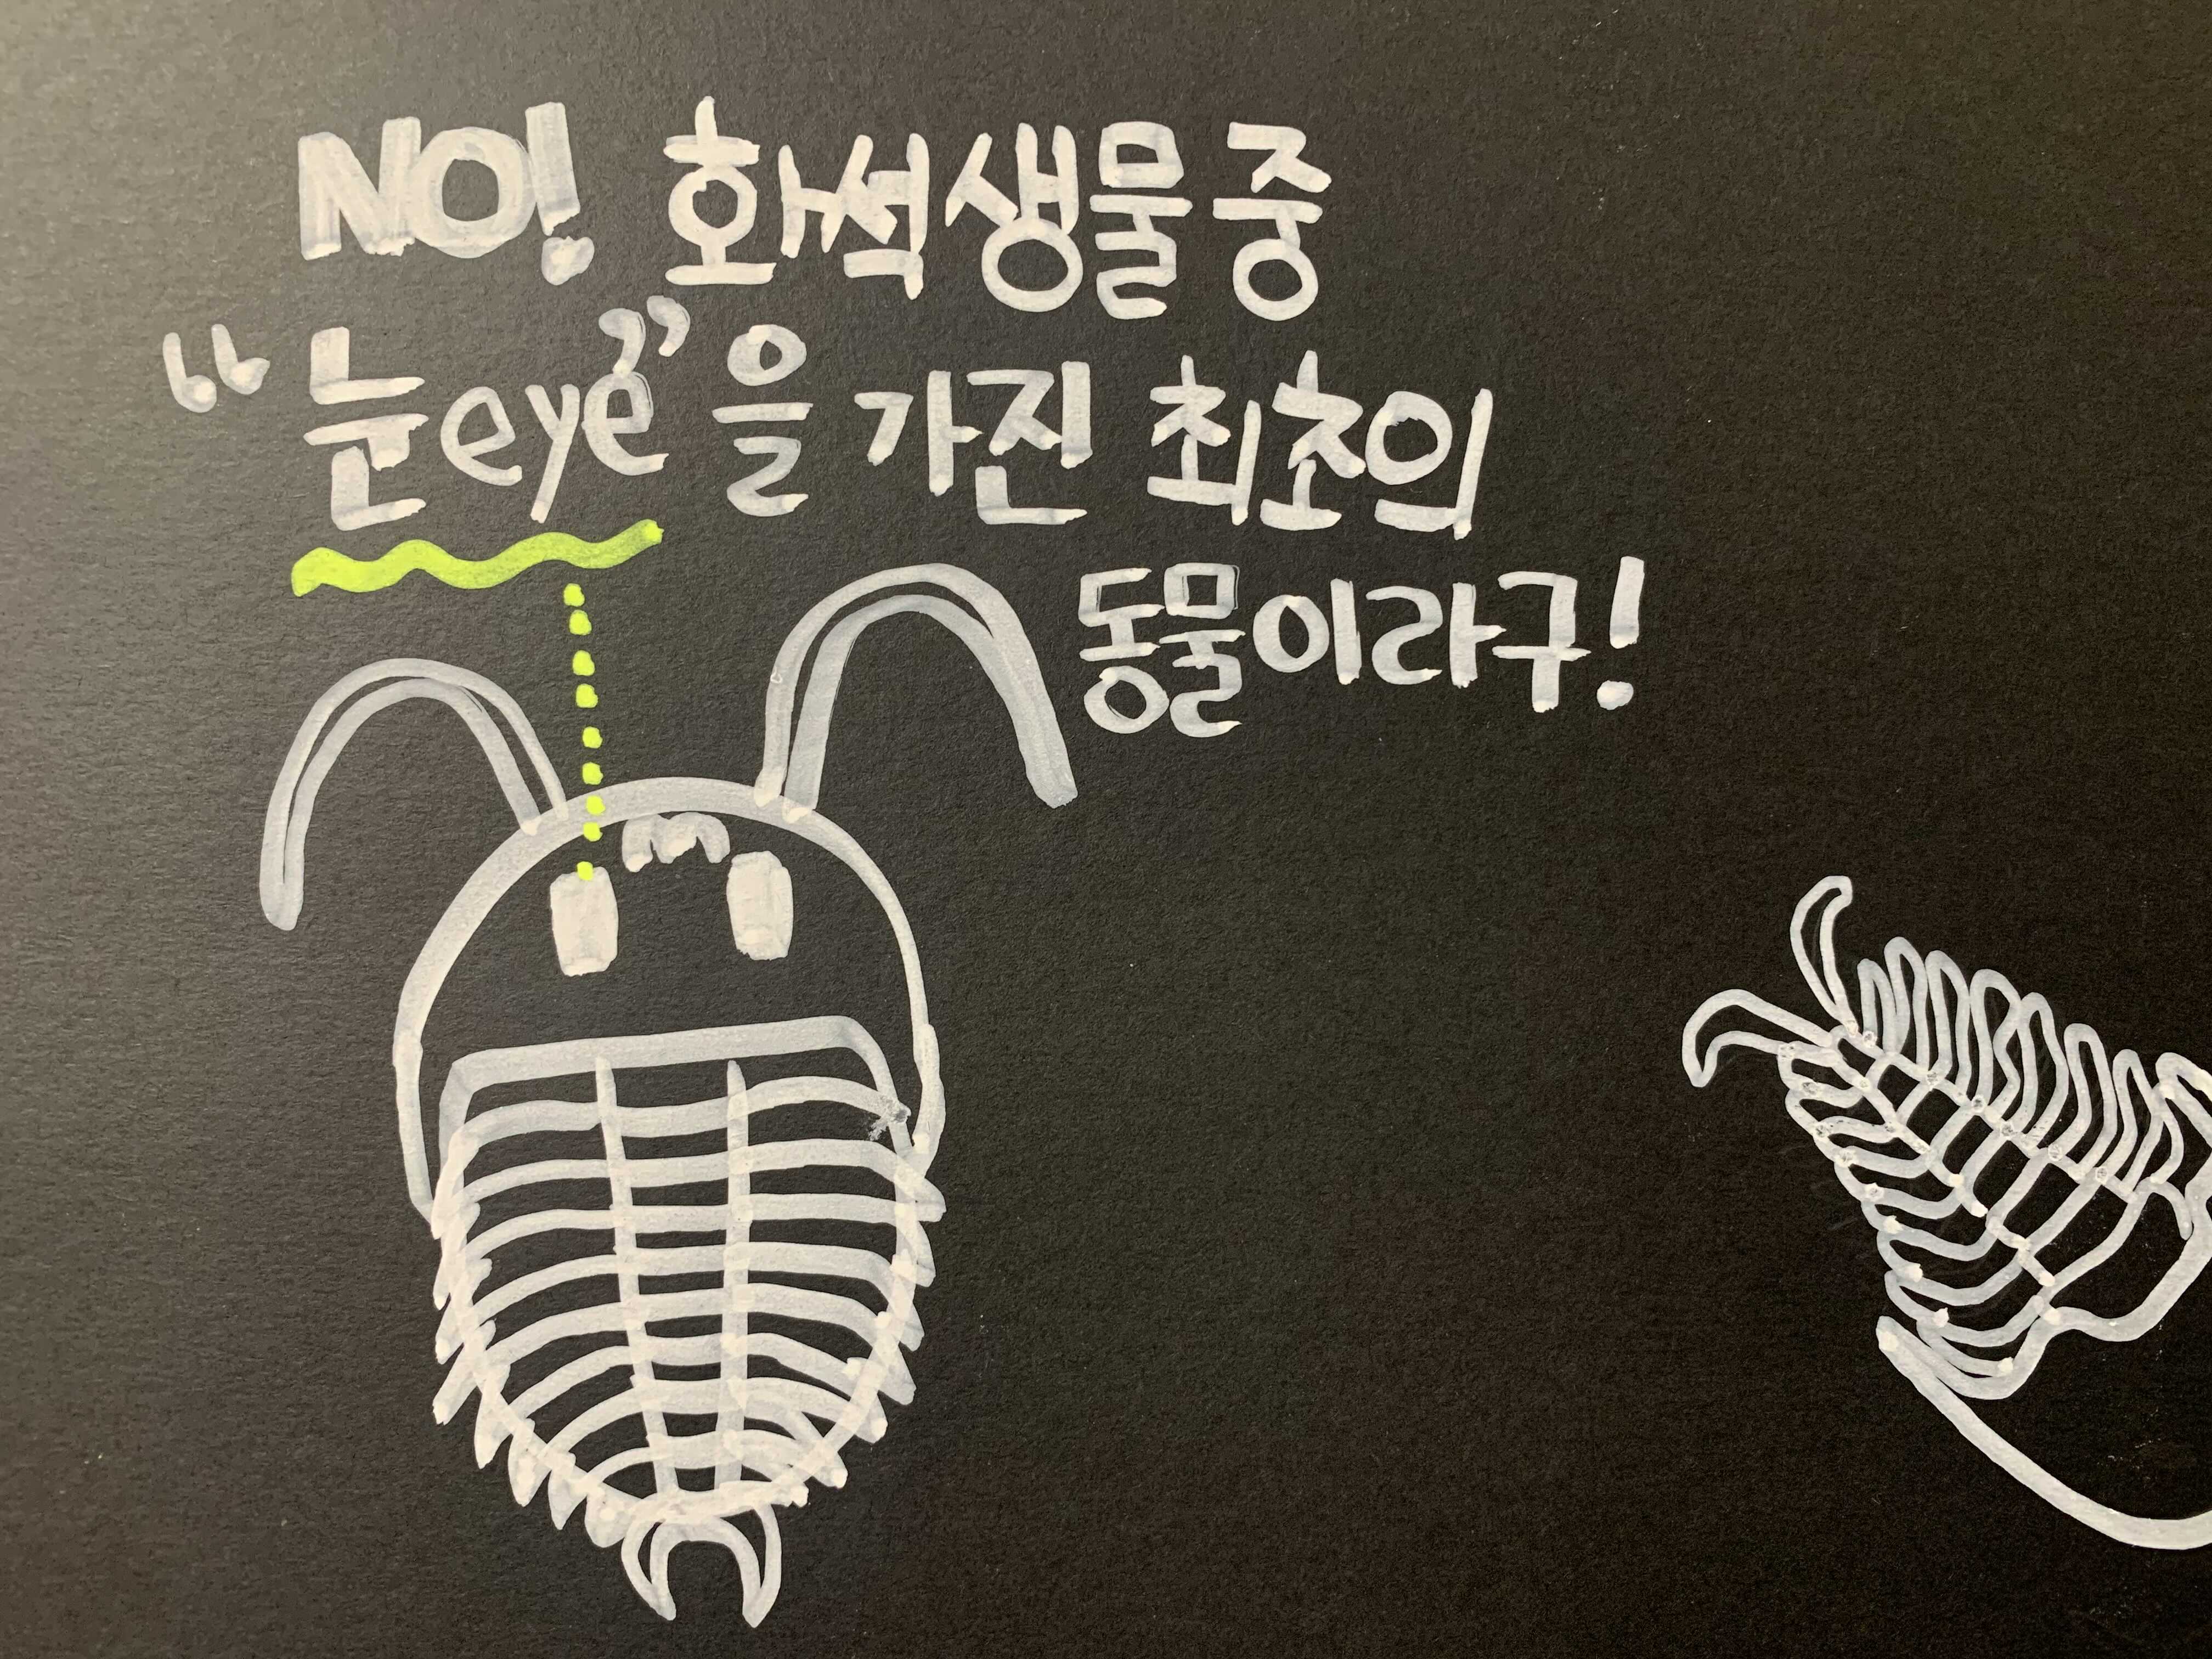 NO! 화석생물중
“눈eye”을 가진 최초의
동물이라구!